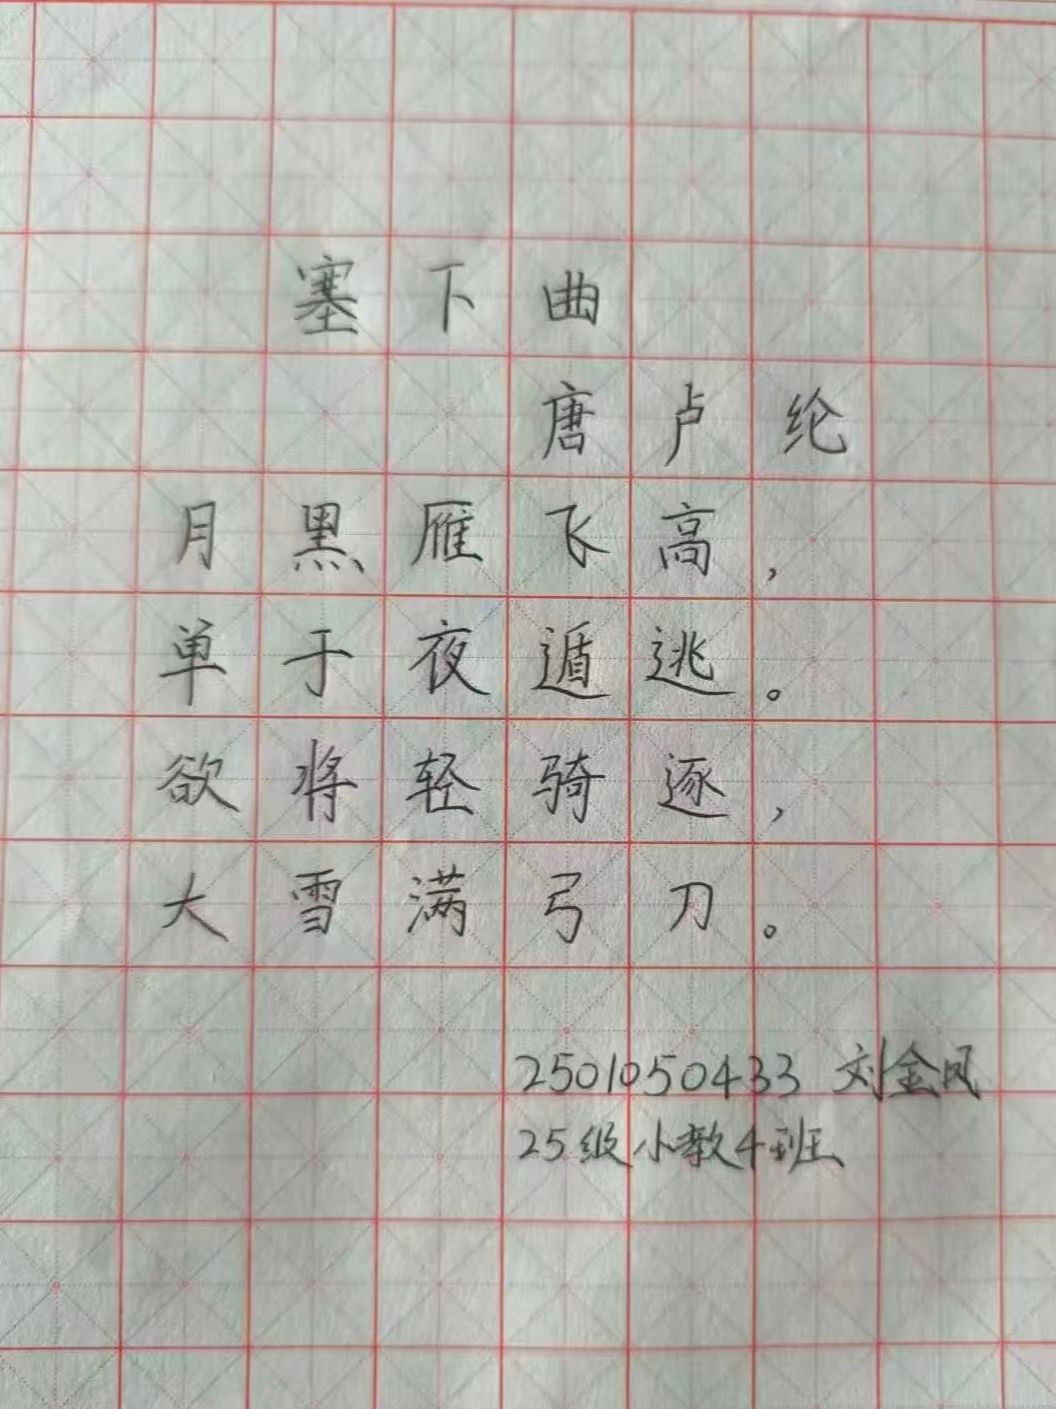 塞下曲
唐卢纶
月黑雁飞高，
单于夜遁逃。
欲将轻骑逐，
大雪满弓刀。
2501050433 刘金凤
25级小教4班